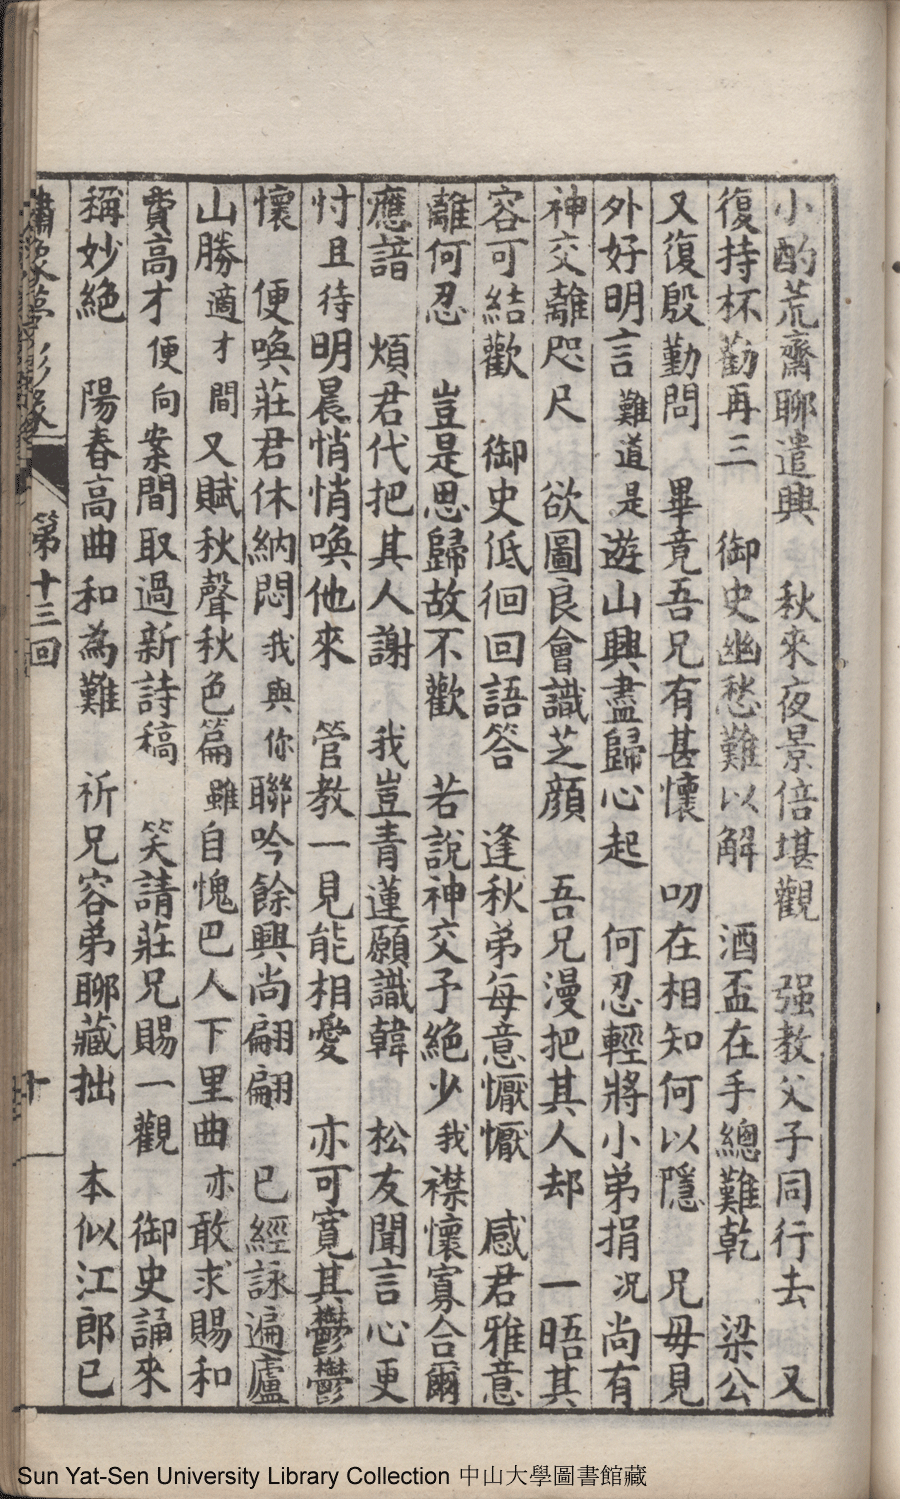 小酌荒齋聊遣興　秋來夜景倍堪觀　强教父子同行去　又
復持杯勸再三　御史幽愁難以解　酒盃在手總難乾　梁公
又復殷勤問　畢竟吾兄有甚懷　叨在相知何以隱　兄毋見
外好明言　難道是遊山興盡歸心起　何忍輕將小弟捐　况尚有
神交離咫尺　欲圖良會識芝顔　吾兄漫把其人却　一晤其
容可結歡　御史低徊回語答　逢秋弟每意懨懨　感君雅意
離何忍　豈是思歸故不歡　若說神交予絶少　我襟懷寡合爾
應諳　煩君代把其人謝　我豈青蓮願識韓　松友聞言心更
忖　且待明晨悄悄喚他來　管教一見能相愛　亦可寛其鬱鬱
懷　便喚莊君休納悶　我與你聯吟餘興尚翩翩　已經詠遍廬
山勝　適才間又賦秋聲秋色篇　雖自愧巴人下里曲　亦敢求賜和
費高才　便向案間取過新詩稿　笑請莊兄賜一觀　御史誦來
稱妙絶　陽春高曲和為難　祈兄容弟聊藏拙　本似江郎已
第十三回